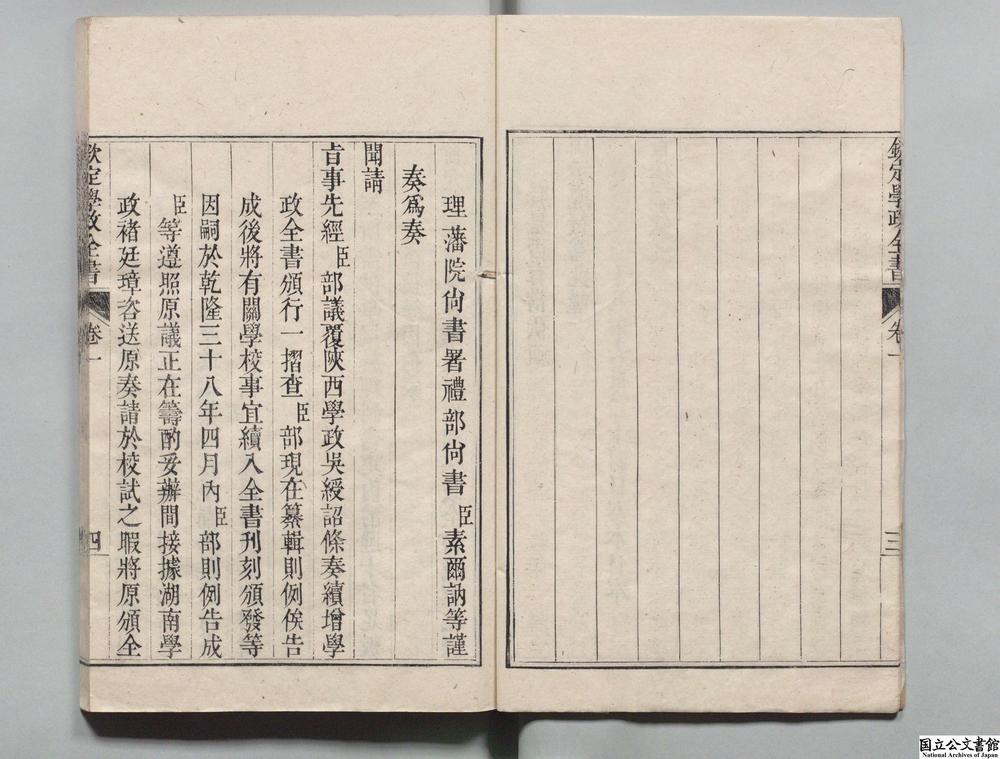 欽定學政全書 卷一 三
理藩院尙書署禮部尙書臣素爾訥等謹
奏爲奏
聞請
旨事先經臣部議覆陝西學政吳綬詔條奏續增學
政全書頒行一摺查臣部現在纂輯則例俟告
成後將有關學校事宜續入全書刊刻頒發等
因嗣於乾隆三十八年四月內臣部則例告成
臣等遵照原議正在籌酌妥辦間接據湖南學
政褚廷璋咨送原奏請於校試之暇將原頒全
欽定學政全書 卷一 四
国立公文書館
National Archives of Japan